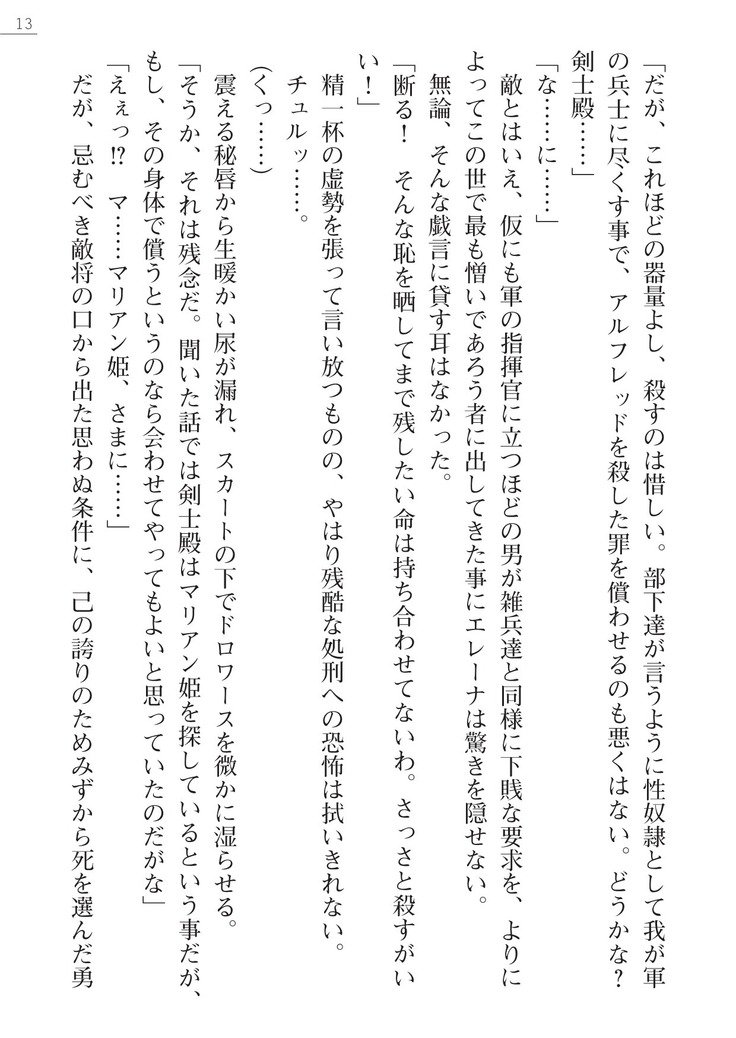 13
「だが、これほどの器量よし、殺すのは惜しい。部下達が言うように性奴隷として我が軍
の兵士に尽くす事で、アルフレッドを殺した罪を償わせるのも悪くはない。どうかな？
剣士殿……」
「な……に……」
敵とはいえ、仮にも軍の指揮官に立つほどの男が雑兵達と同様に下賎な要求を、よりに
よってこの世で最も憎いであろう者に出してきた事にエレーナは驚きを隠せない。
無論、そんな戯言に貸す耳はなかった。
「断る！　そんな恥を晒してまで残したい命は持ち合わせてないわ。さっさと殺すがい
い！」
精一杯の虚勢を張って言い放つものの、やはり残酷な処刑への恐怖は拭いきれない。
チュルッ……。
(くっ……)
震える秘唇から生暖かい尿が漏れ、スカートの下でドロワースを微かに湿らせる。
「そうか、それは残念だ。聞いた話では剣士殿はマリアン姫を探しているという事だが、
もし、その身体で償うというのなら会わせてやってもよいと思っていたのだがな」
「えぇっ!?　マ……マリアン姫、さまに……」
だが、忌むべき敵将の口から出た思わぬ条件に、己の誇りのためみずから死を選んだ勇